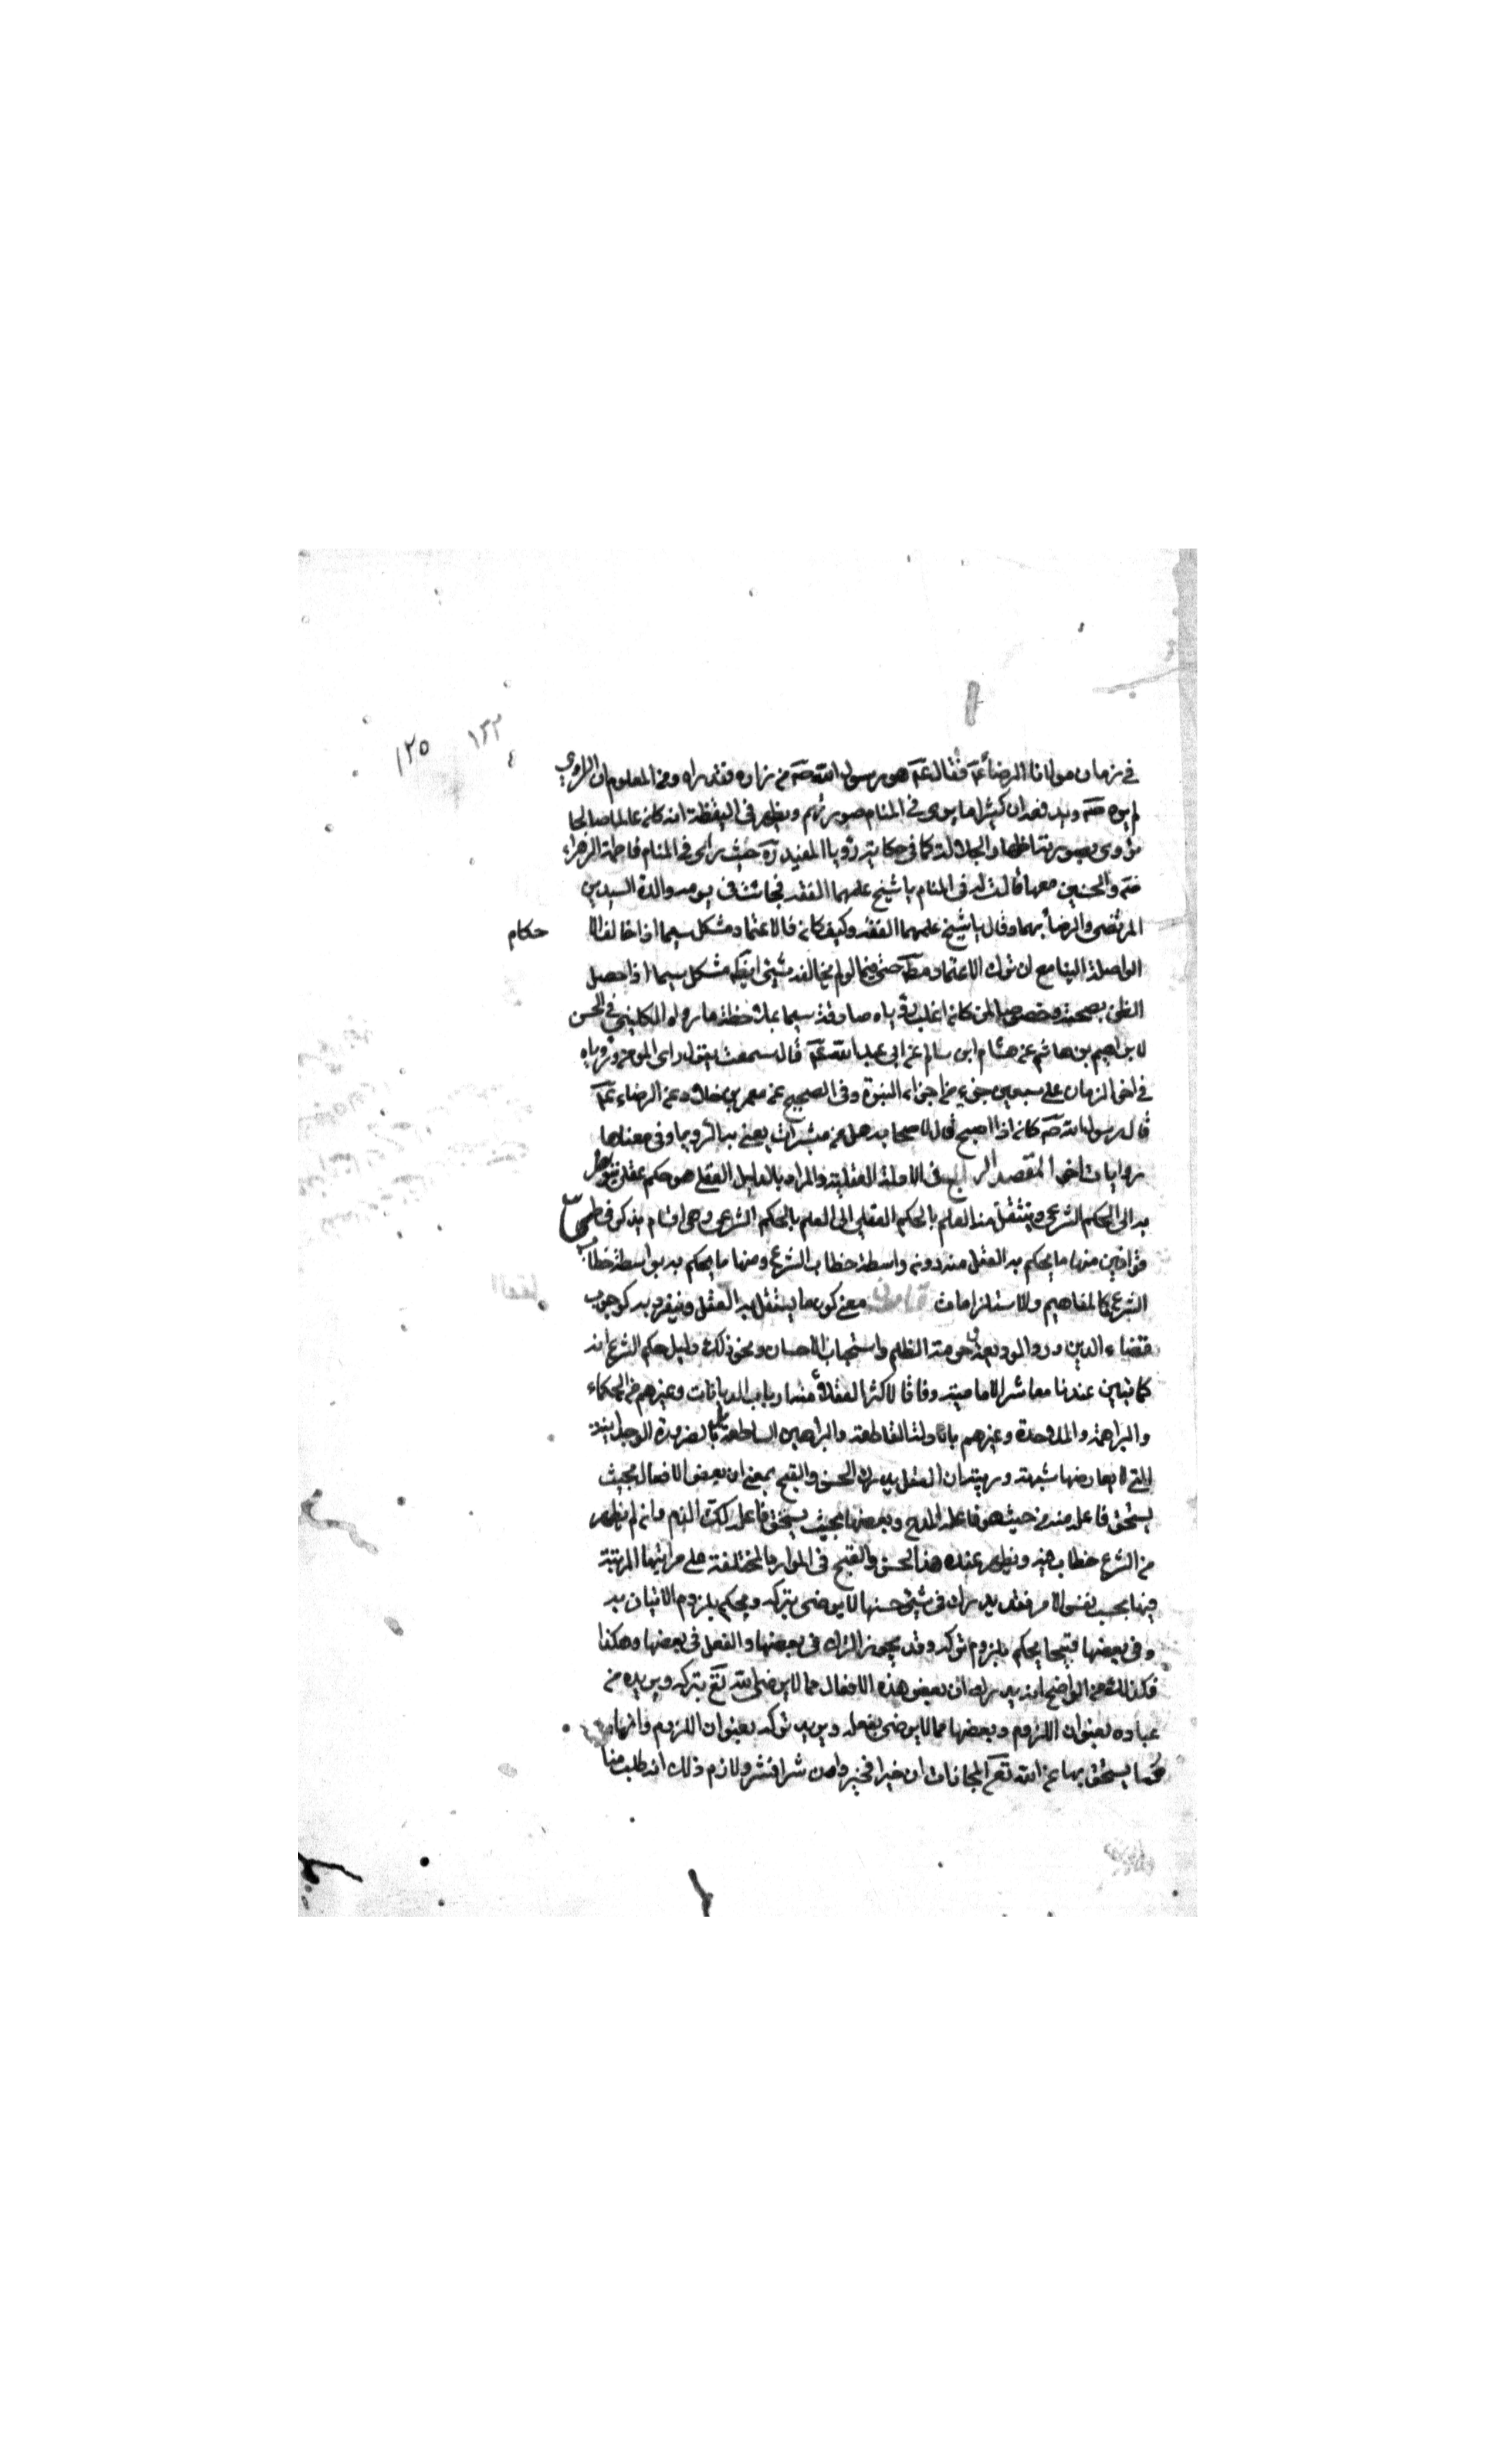 ١٢٢
١٢٥
في زمان مولانا الرضا عم فقال عم هو رسول الله صم من راه فقد راه ومن المعلوم ان الراوي
لم يره صم ويد فعه ان كثيرا ما يرى في المنام صورتهم ويظهر في اليقظة انه كان عالما صالحا
رؤى بصورتنا اظهارا لجلالته كما في حكاية رؤيا المفيد ره حيث راى في المنام فاطمة الزهراء
والحسنين معها قالت له في المنام يا شيخ علمهما الفقه فجائت في يومه والدة السيدين
المرتضى والرضا بهما وقال يا شيخ علمهما الفقه وكيف كان فالاعتماد مشكل سيما اذا خالف الا
حكام
الواصلة الينا مع ان ترك الاعتماد مط حتى فيما لو لم يخالفه شيئ ايض مشكل سيما اذا حصل
الظن بصحته وخصوصا لمن كان اغلب رؤياه صادقة سيما بملاحظة ما رواه الكليني في الحسن
لابراهيم بن هاشم عن هشام ابن سالم عن ابي عبد الله عم قال سمعته يقول راى المؤمن ورؤياه
في اخر الزمان على سبعين جزء من اجزاء النبوة وفي الصحيح عن معمر بن خلاد عن الرضا عم
قال رسول الله صم كان اذا اصبح قال لاصحابه هل من مبشرات يعني به الرؤيا وفي معناها
روايات اخر المقصد الرابع في الادلة العقلية والمراد بالدليل العقلي هو حكم عقلي يتوصل
به الى الحكم الشرعي وينتقل من العلم بالحكم العقلي الى العلم بالحكم الشرعي وهي اقسام يذكر في طي
قوانين منها ما يحكم به العقل من دون واسطة خطاب الشرع ومنها ما يحكم به بواسطة خطاب
الشرع كالمفاهيم والاستلزامات قانون معنى كون ما يستقل به العقل وينفرد به كوجوب
قضاء الدين ورد الوديعة وحرمة الظلم واستحباب الاحسان ونحو ذلك دليل حكم الشرع انه
كما تبين عندنا معاشر الامامية وفاقا لاكثر العقلاء من ارباب الديانات وغيرهم من الحكماء
والبراهمة والملاحدة وغيرهم بالادلة القاطعة والبراهين الساطعة بل بالضرورة الوجدانية
التي لا يعارضها شبهة وريبة ان العقل يدرك الحسن والقبح بمعنى ان بعض الافعال بحيث
يستحق فاعله من حيث هو فاعله المدح وبعضها بحيث يستحق فاعله كك الذم وان لم يظهر
من الشرع خطاب فيه ويظهر عنده هذا الحسن والقبح في الموارد المختلفة على مراتبهما المرتبة
فيها بحسب نفس الامر فقد يدرك في شيئ حسنها لا يرضى بتركه ويحكم بلزوم الاتيان به
وفي بعضها قبيحا يحكم بلزوم تركه وقد يجوز الترك في بعضها والفعل في بعضها وهكذا
فكذلك من الواضح انه يدرك ان بعض هذه الافعال مما لا يرضى الله تع بتركه ويريده من
عباده بعنوان اللزوم وبعضها مما لا يرضى بفعله ويريد تركه بعنوان اللزوم وانها
مما يستحق بها عن الله تع المجازات ان خيرا فخير وان شرا فشر ولازم ذلك انه طلب منا